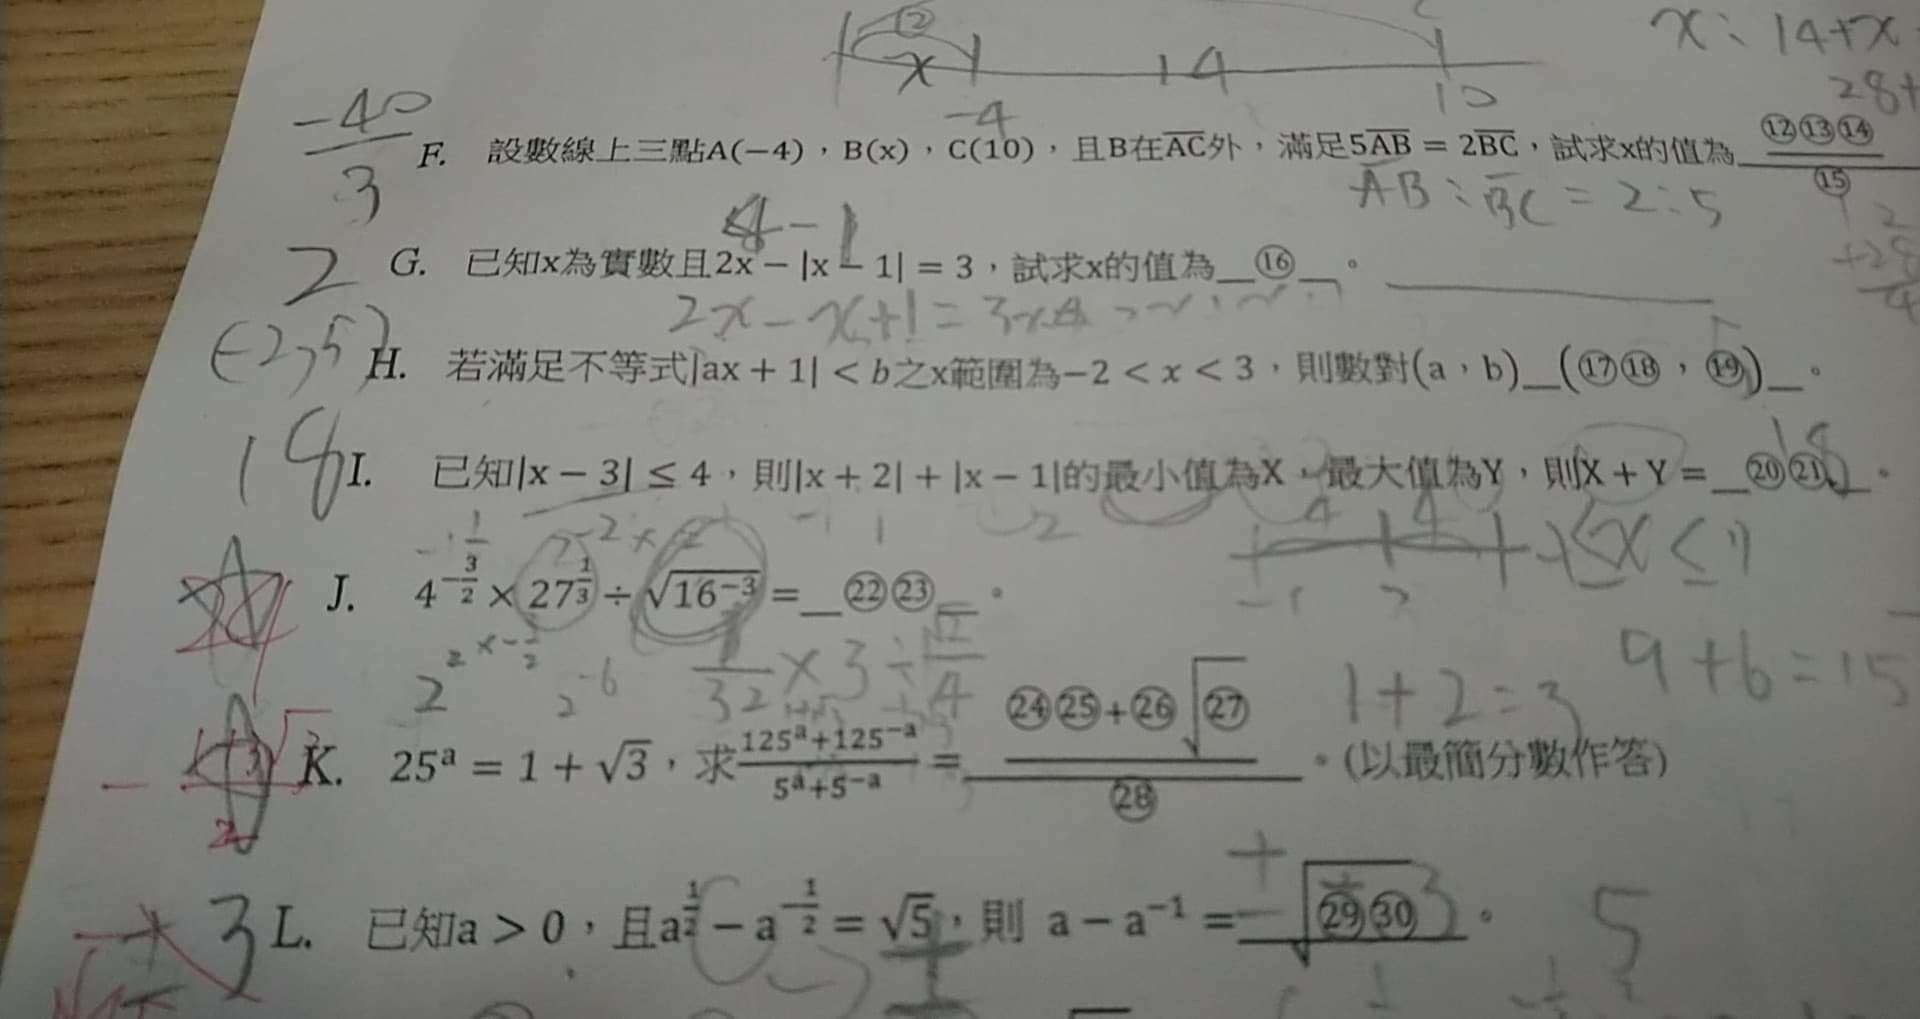 ② x 14 10 -4
x : 14+x
28+
-40/3
F. 設數線上三點A(−4),B(x),C(10),且B在AC外,滿足5AB = 2BC,試求x的值為__⑫⑬⑭/⑮
AB : BC = 2:5
4-1
2 G. 已知x為實數且2x − |x − 1| = 3,試求x的值為__⑯__。
2x - x+1 = 3
(-2,5) H. 若滿足不等式|ax + 1| < b之x範圍為−2 < x < 3,則數對(a,b)__(⑰⑱,⑲)__。
18 I. 已知|x − 3| ≤ 4,則|x + 2| + |x − 1|的最小值為X、最大值為Y,則X + Y = __⑳㉑__。
18
4 4 -1 ≤ x ≤ 7
J. 4^(−3/2) × 27^(1/3) ÷ √(16^(−3)) = __㉒㉓__。
24
2 2^-6 1/32 × 3 ÷
9+6=15
1+2=3
K. 25ᵃ = 1 + √3,求 (125ᵃ+125⁻ᵃ)/(5ᵃ+5⁻ᵃ) = (㉔㉕+㉖√㉗)/㉘。(以最簡分數作答)
3 L. 已知a > 0,且a^(1/2) − a^(−1/2) = √5,則 a − a⁻¹ = __√㉙㉚__。
5